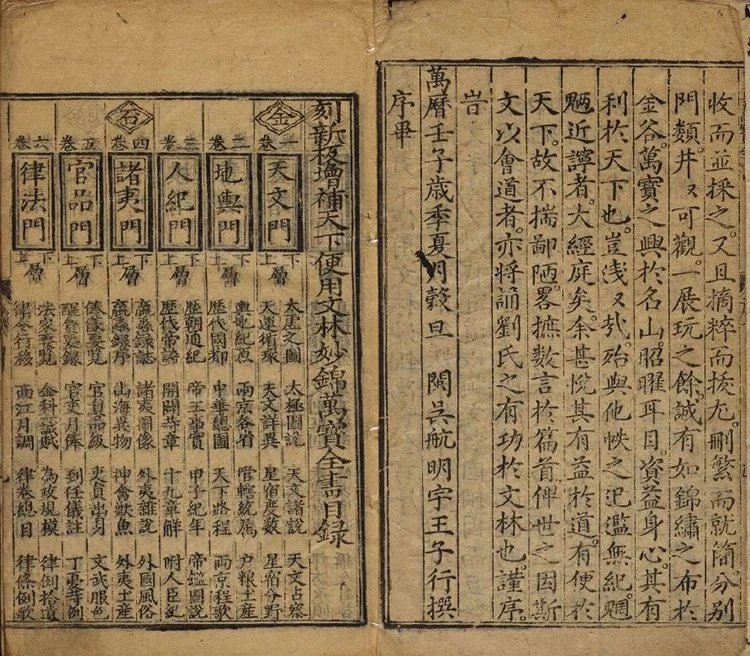 收而並採之又且摘粹而拔尤刪繁而就簡分別
門類井〻可觀一展玩之餘誠有如錦繡之布於
金谷萬寶之興於名山昭曜耳目資益身心其有
利於天下也豈浅〻㢤殆與他帙之汜濫無紀
近讀者大經庭矣余甚悅其有益於道有便於
天下故不揣鄙陋畧摭數言於篇首俾世之因斯
文以會道者亦將誦劉氏之有功於文林也謹序
旹
萬曆壬子歲季夏月穀旦 閩吳航明宇王子行撰
序畢
刻新板增補天下便用文林妙錦萬寶全書目錄
金
一卷 天文門 下上層
太虛之圖 太極圖說 天文諸說 天文占察
天運循環 天文祥異 星宿度數 星宿分野
二卷 地輿門 下上層
輿地紀原 兩京各省 管轄統屬 户粮土産
歷代國都 中華總圖 天下路程 兩京程歌
三卷 人紀門 下上層
歷朝通紀 帝王事實 甲子紀年 圖說
歷代帝 開闢 十九章解 附人臣紀
石
四卷 諸夷門 下上層
蠃蟲錄誌 諸夷圖像 外夷雜說 外國風俗
蠃蟲錄序 山海異物 神禽獸魚 外夷土産
五卷 官品門 下上層
要覽 官員品級 吏員出身 文武服色
要錄 官吏月俸 到任儀註 丁憂例
六卷 律法門 下上層
法家要覽 金科賦 為政規模 律例拾遺
律令行移 西江月調 律卷總目 律條例歌